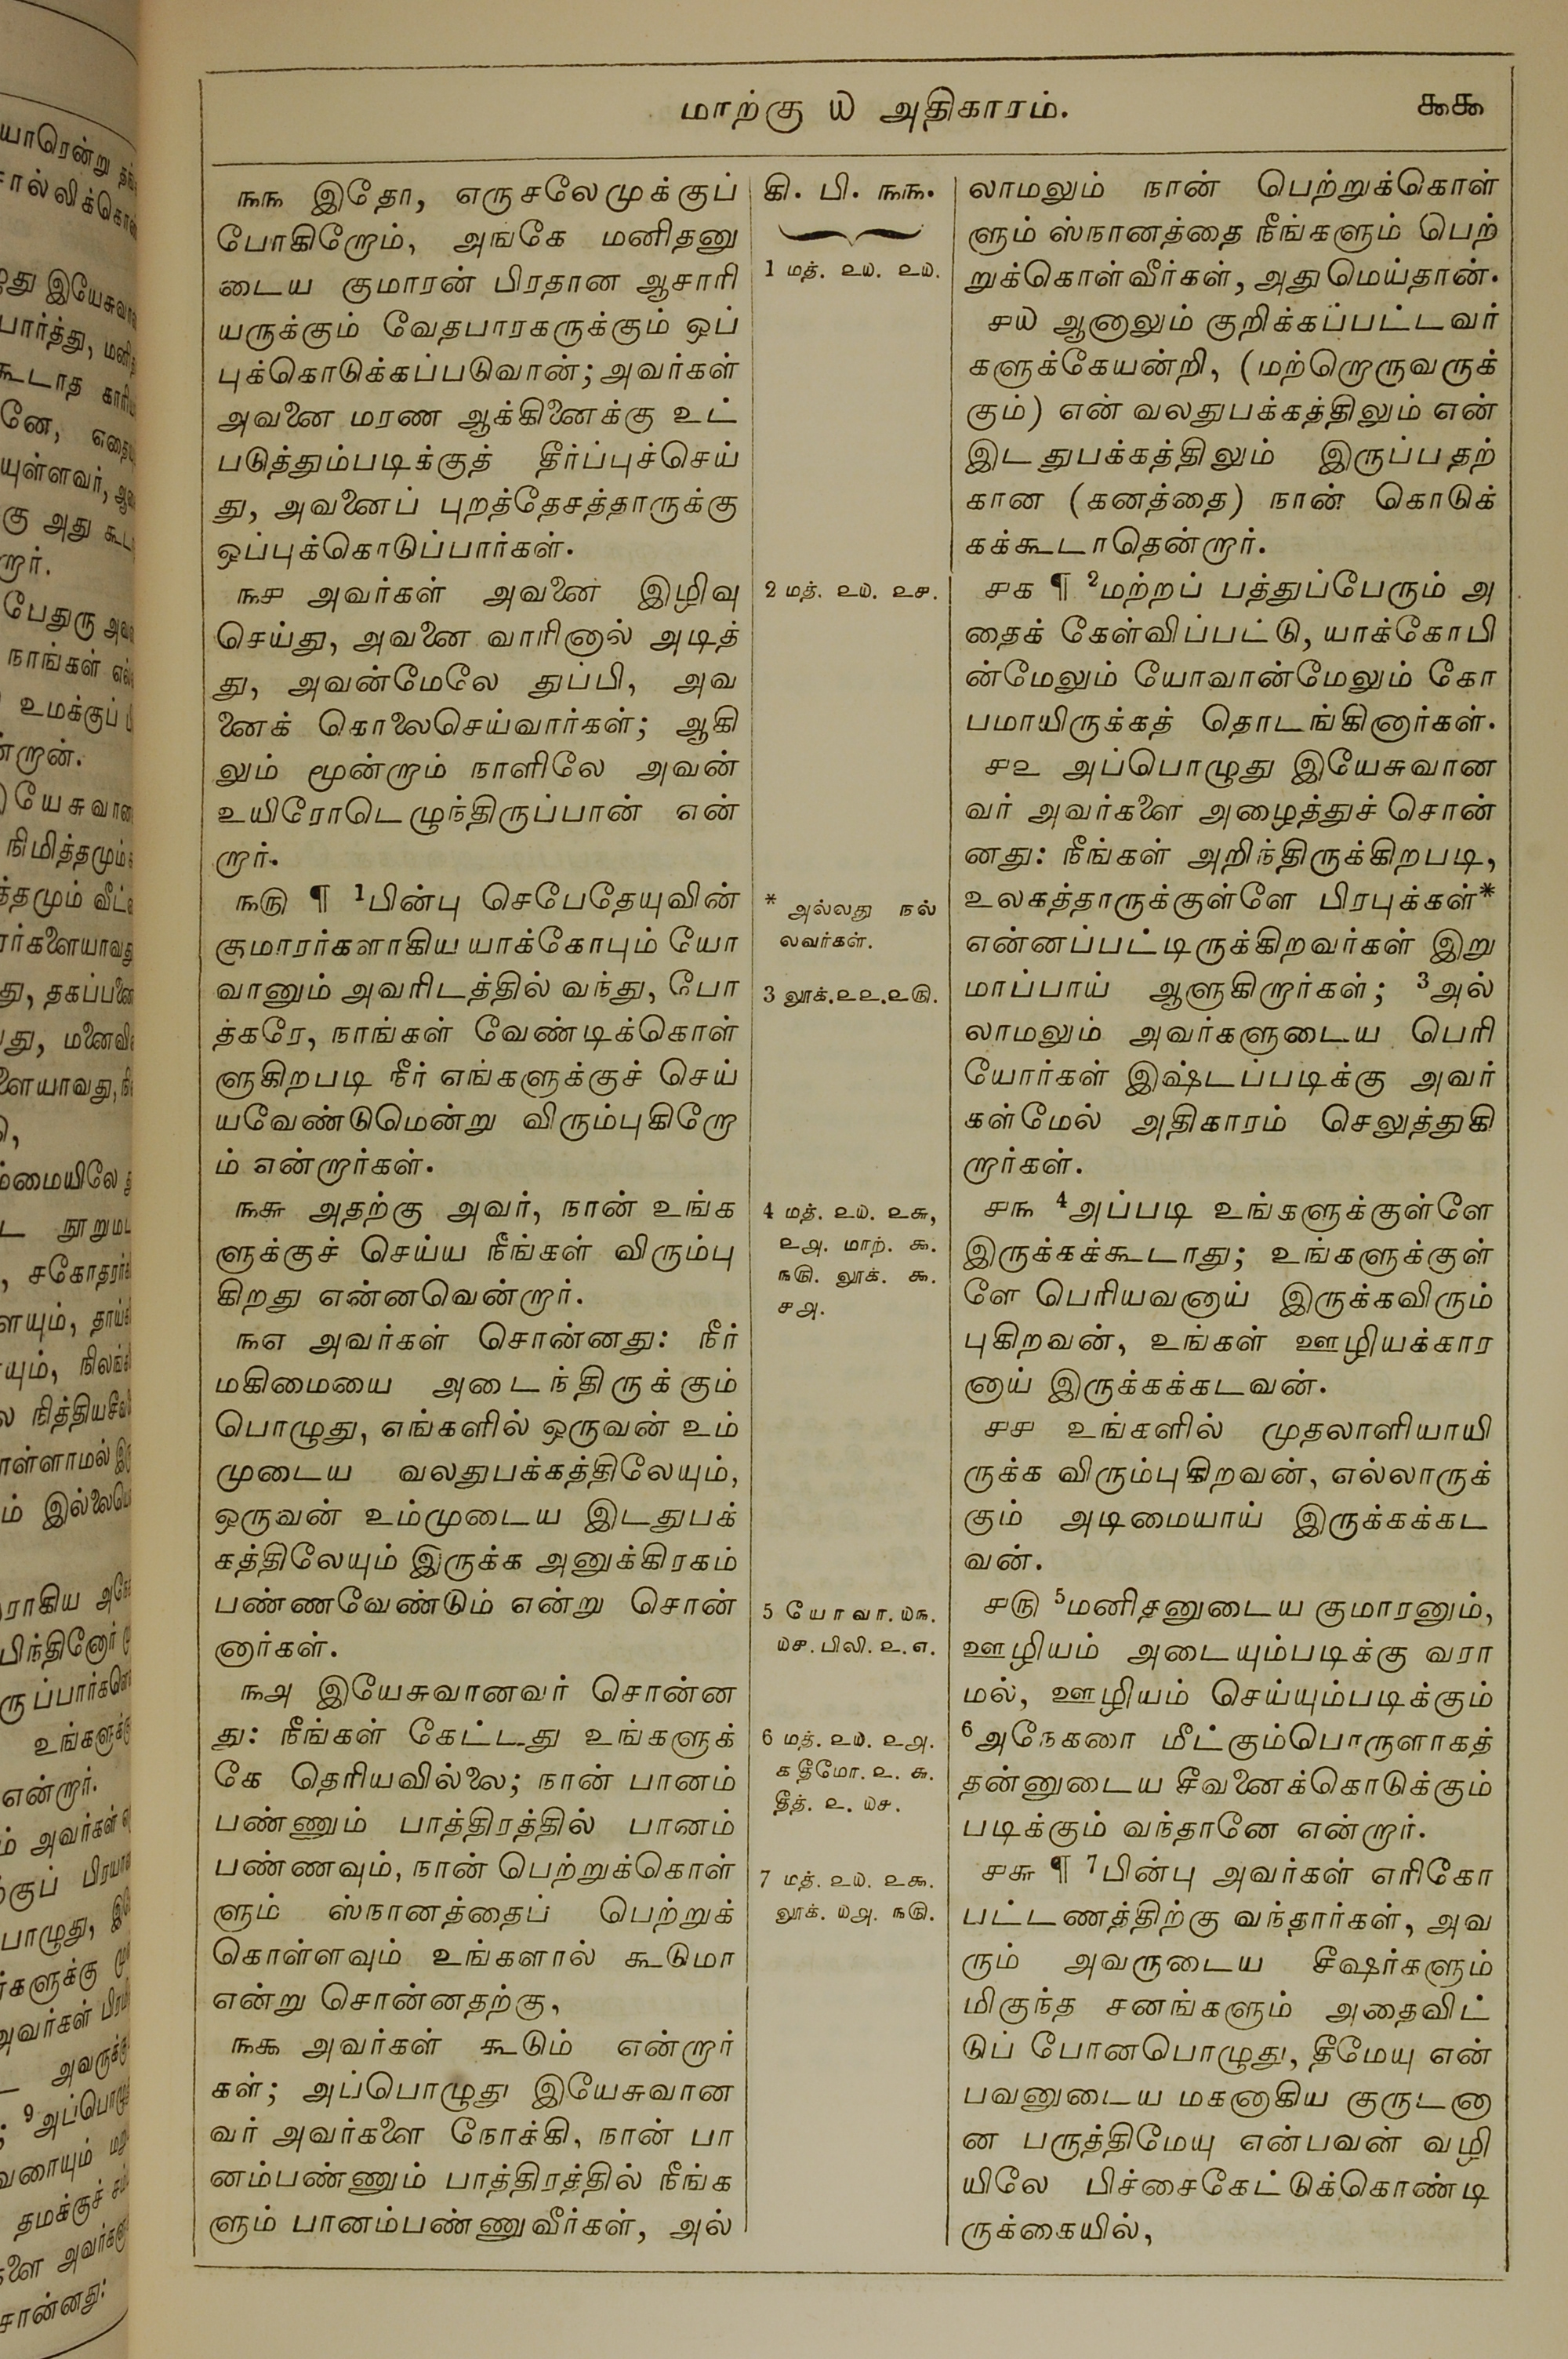 மாற்கு ௰ அதிகாரம்.
௯௯
௩௩ இதோ, எருசலேமுக்குப்
போகிறோம், அங்கே மனிதனு
டைய குமாரன் பிரதான ஆசாரி
யருக்கும் வேதபாரகருக்கும் ஒப்
புக்கொடுக்கப்படுவான்; அவர்கள்
அவனை மரண ஆக்கினைக்கு உட்
படுத்தும்படிக்குத் தீர்ப்புச்செய்
து, அவனைப் புறத்தேசத்தாருக்கு
ஒப்புக்கொடுப்பார்கள்.
௩௪ அவர்கள் அவனை இழிவு
செய்து, அவனை வாரினால் அடித்
து, அவன்மேலே துப்பி, அவ
னைக் கொலைசெய்வார்கள்; ஆகி
லும் மூன்றாம் நாளிலே அவன்
உயிரோடெழுந்திருப்பான் என்
றார்.
௩௫ ¶ ¹பின்பு செபேதேயுவின்
குமாரர்களாகிய யாக்கோபும் யோ
வானும் அவரிடத்தில் வந்து, போ
தகரே, நாங்கள் வேண்டிக்கொள்
ளுகிறபடி நீர் எங்களுக்குச் செய்
யவேண்டுமென்று விரும்புகிறோ
ம் என்றார்கள்.
௩௬ அதற்கு அவர், நான் உங்க
ளுக்குச் செய்ய நீங்கள் விரும்பு
கிறது என்னவென்றார்.
௩௭ அவர்கள் சொன்னது: நீர்
மகிமையை அடைந்திருக்கும்
பொழுது, எங்களில் ஒருவன் உம்
முடைய வலதுபக்கத்திலேயும்,
ஒருவன் உம்முடைய இடதுபக்
கத்திலேயும் இருக்க அனுக்கிரகம்
பண்ணவேண்டும் என்று சொன்
னார்கள்.
௩௮ இயேசுவானவர் சொன்ன
து: நீங்கள் கேட்டது உங்களுக்
கே தெரியவில்லை; நான் பானம்
பண்ணும் பாத்திரத்தில் பானம்
பண்ணவும், நான் பெற்றுக்கொள்
ளும் ஸ்நானத்தைப் பெற்றுக்
கொள்ளவும் உங்களால் கூடுமா
என்று சொன்னதற்கு,
௩௯ அவர்கள் கூடும் என்றார்
கள்; அப்பொழுது இயேசுவான
வர் அவர்களை நோக்கி, நான் பா
னம்பண்ணும் பாத்திரத்தில் நீங்க
ளும் பானம்பண்ணுவீர்கள், அல்
கி. பி. ௩௩.
1 மத். ௨௰. ௨௰.
2 மத். ௨௰. ௨௪.
* அல்லது நல்
லவர்கள்.
3 லூக்.௨௨.௨௫.
4 மத். ௨௰. ௨௬,
௨௮. மாற். ௯.
௩௫. லூக். ௯.
௪௮.
5 யோவா. ௰௩.
௰௪. பிலி. ௨. ௭.
6 மத். ௨௰. ௨௮.
௧ தீமோ. ௨. ௬.
தீத். ௨. ௰௪.
7 மத். ௨௰. ௨௯.
லூக். ௰௮. ௩௫.
லாமலும் நான் பெற்றுக்கொள்
ளும் ஸ்நானத்தை நீங்களும் பெற்
றுக்கொள்வீர்கள், அதுமெய்தான்.
௪௰ ஆனாலும் குறிக்கப்பட்டவர்
களுக்கேயன்றி, (மற்றொருவருக்
கும்) என் வலதுபக்கத்திலும் என்
இடதுபக்கத்திலும் இருப்பதற்
கான (கனத்தை) நான் கொடுக்
கக்கூடாதென்றார்.
௪௧ ¶ ²மற்றப் பத்துப்பேரும் அ
தைக் கேள்விப்பட்டு, யாக்கோபி
ன்மேலும் யோவான்மேலும் கோ
பமாயிருக்கத் தொடங்கினார்கள்.
௪௨ அப்பொழுது இயேசுவான
வர் அவர்களை அழைத்துச் சொன்
னது: நீங்கள் அறிந்திருக்கிறபடி,
உலகத்தாருக்குள்ளே பிரபுக்கள்*
என்னப்பட்டிருக்கிறவர்கள் இறு
மாப்பாய் ஆளுகிறார்கள்; ³அல்
லாமலும் அவர்களுடைய பெரி
யோர்கள் இஷ்டப்படிக்கு அவர்
கள்மேல் அதிகாரம் செலுத்துகி
றார்கள்.
௪௩ ⁴அப்படி உங்களுக்குள்ளே
இருக்கக்கூடாது; உங்களுக்குள்
ளே பெரியவனாய் இருக்கவிரும்
புகிறவன், உங்கள் ஊழியக்கார
னாய் இருக்கக்கடவன்.
௪௪ உங்களில் முதலாளியாயி
ருக்க விரும்புகிறவன், எல்லாருக்
கும் அடிமையாய் இருக்கக்கட
வன்.
௪௫ ⁵மனிதனுடைய குமாரனும்,
ஊழியம் அடையும்படிக்கு வரா
மல், ஊழியம் செய்யும்படிக்கும்
⁶அநேகரை மீட்கும்பொருளாகத்
தன்னுடைய சீவனைக்கொடுக்கும்
படிக்கும் வந்தானே என்றார்.
௪௬ ¶ ⁷பின்பு அவர்கள் எரிகோ
பட்டணத்திற்கு வந்தார்கள், அவ
ரும் அவருடைய சீஷர்களும்
மிகுந்த சனங்களும் அதைவிட்
டுப் போனபொழுது, தீமேயு என்
பவனுடைய மகனாகிய குருடனா
ன பருத்திமேயு என்பவன் வழி
யிலே பிச்சைகேட்டுக்கொண்டி
ருக்கையில்,